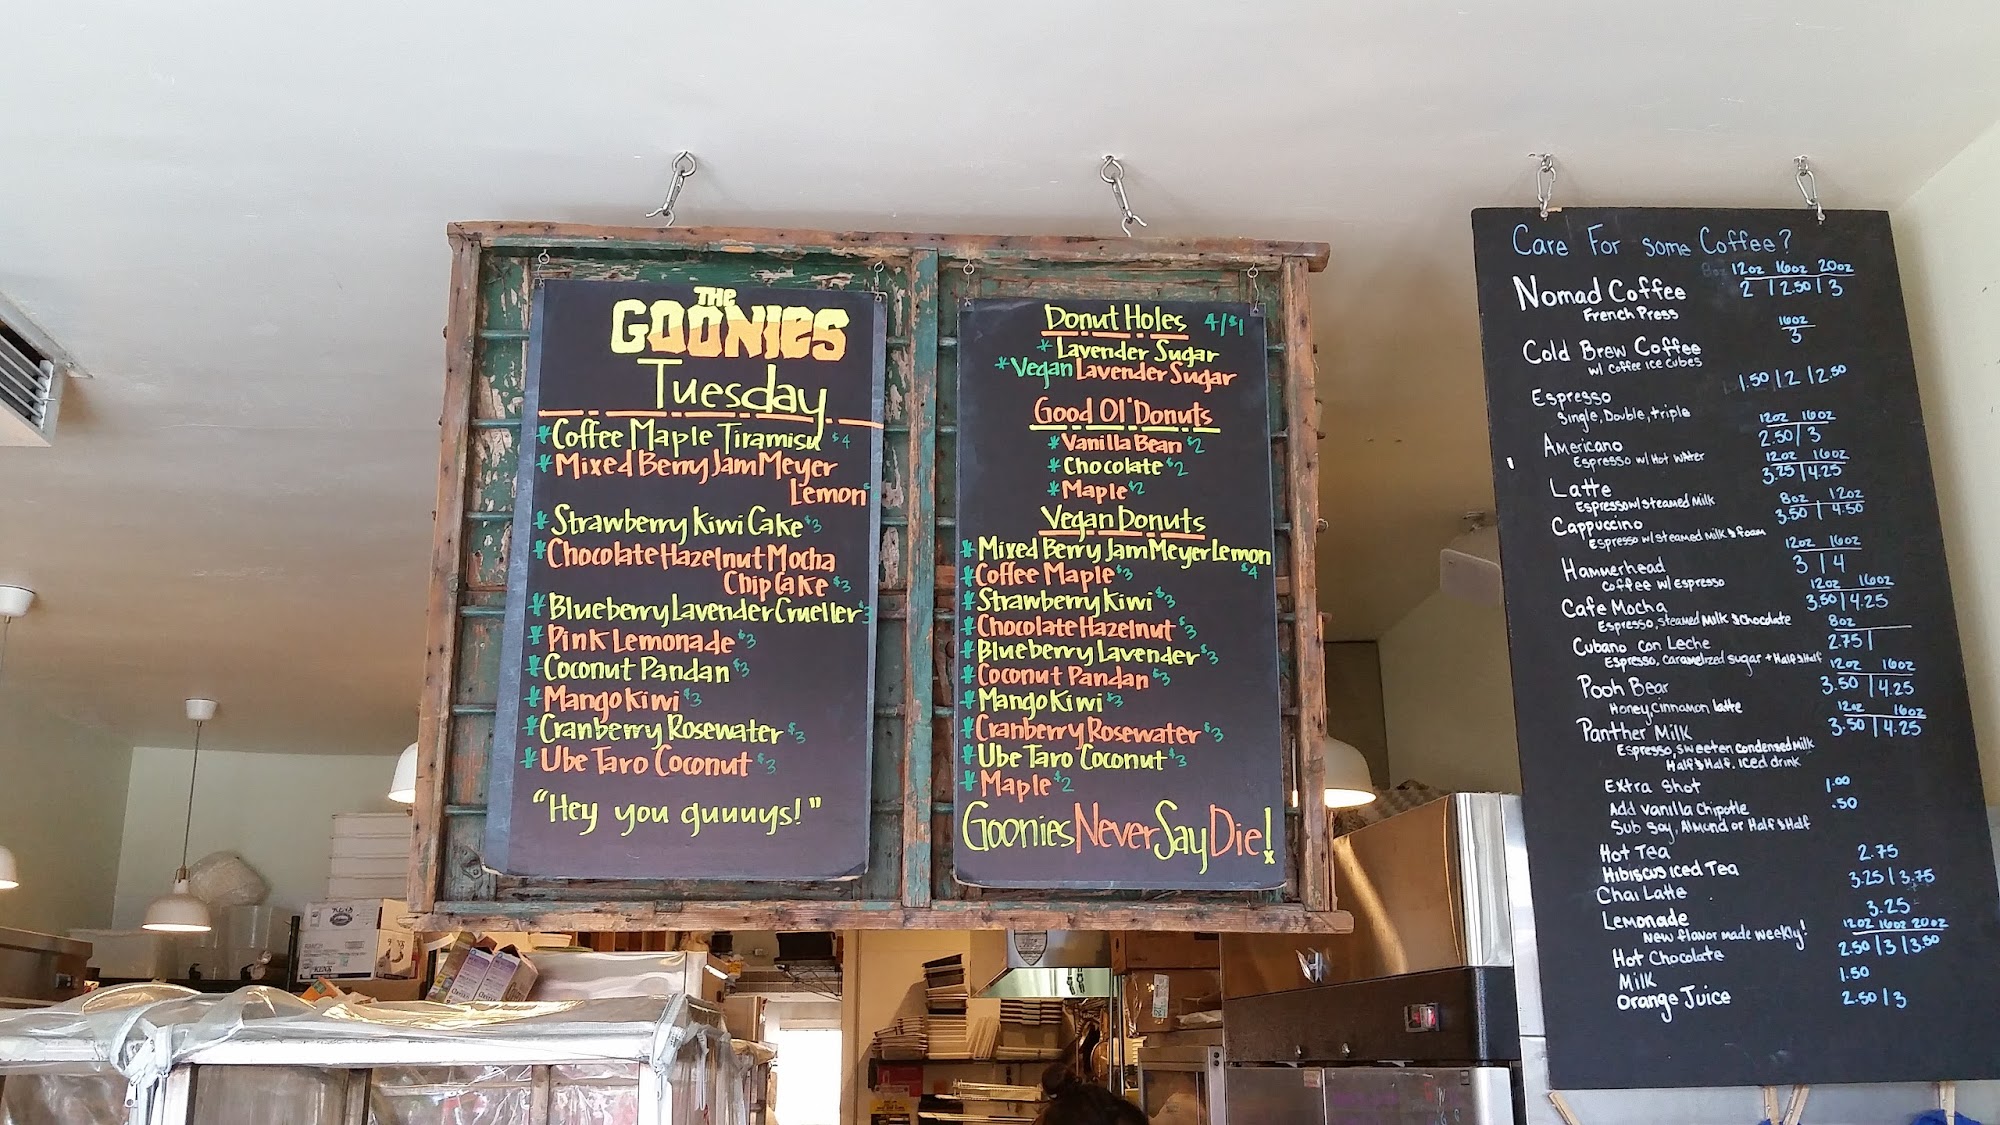 THE
GOONIES
Tuesday
*Coffee Maple Tiramisu $4
*Mixed Berry Jam Meyer
Lemon
*Strawberry Kiwi Cake $3
*Chocolate Hazelnut Mocha
Chip Cake $3
*Blueberry Lavender Crueller $3
*Pink Lemonade $3
*Coconut Pandan $3
*Mango Kiwi $3
*Cranberry Rosewater $3
*Ube Taro Coconut $3
"Hey you guuuys!"
Donut Holes 4/$1
*Lavender Sugar
*Vegan Lavender Sugar
Good Ol' Donuts
*Vanilla Bean $2
*Chocolate $2
*Maple $2
Vegan Donuts
*Mixed Berry Jam Meyer Lemon
$4
*Coffee Maple $3
*Strawberry Kiwi $3
*Chocolate Hazelnut $3
*Blueberry Lavender $3
*Coconut Pandan $3
*Mango Kiwi $3
*Cranberry Rosewater $3
*Ube Taro Coconut $3
*Maple $2
Goonies Never Say Die!
Care For some Coffee?
8oz 12oz 16oz 20oz
Nomad Coffee 2 | 2.50 | 3
French Press
16oz
Cold Brew Coffee 3
w/ Coffee ice cubes
Espresso 1.50 | 2 | 2.50
Single, Double, triple
12oz 16oz
Americano 2.50 | 3
Espresso w/ Hot Water
12oz 16oz
Latte 3.25 | 4.25
Espresso w/ steamed Milk
8oz 12oz
Cappuccino 3.50 | 4.50
Espresso w/ steamed Milk & foam
12oz 16oz
Hammerhead 3 | 4
Coffee w/ Espresso
12oz 16oz
Cafe Mocha 3.50 | 4.25
Espresso, steamed Milk & Chocolate
8oz
Cubano con Leche 2.75 |
Espresso, caramelized sugar + Half & Half
12oz 16oz
Pooh Bear 3.50 | 4.25
Honey, Cinnamon latte
12oz 16oz
Panther Milk 3.50 | 4.25
Espresso, sweeten condensed Milk
Half & Half. iced drink
Extra Shot 1.00
Add Vanilla Chipotle .50
Sub Soy, Almond or Half & Half
Hot Tea 2.75
Hibiscus iced Tea 3.25 | 3.75
Chai Latte 3.25
Lemonade 12oz 16oz 20oz
New flavor made weekly! 2.50 | 3 | 3.50
Hot Chocolate
Milk 1.50
Orange Juice 2.50 | 3